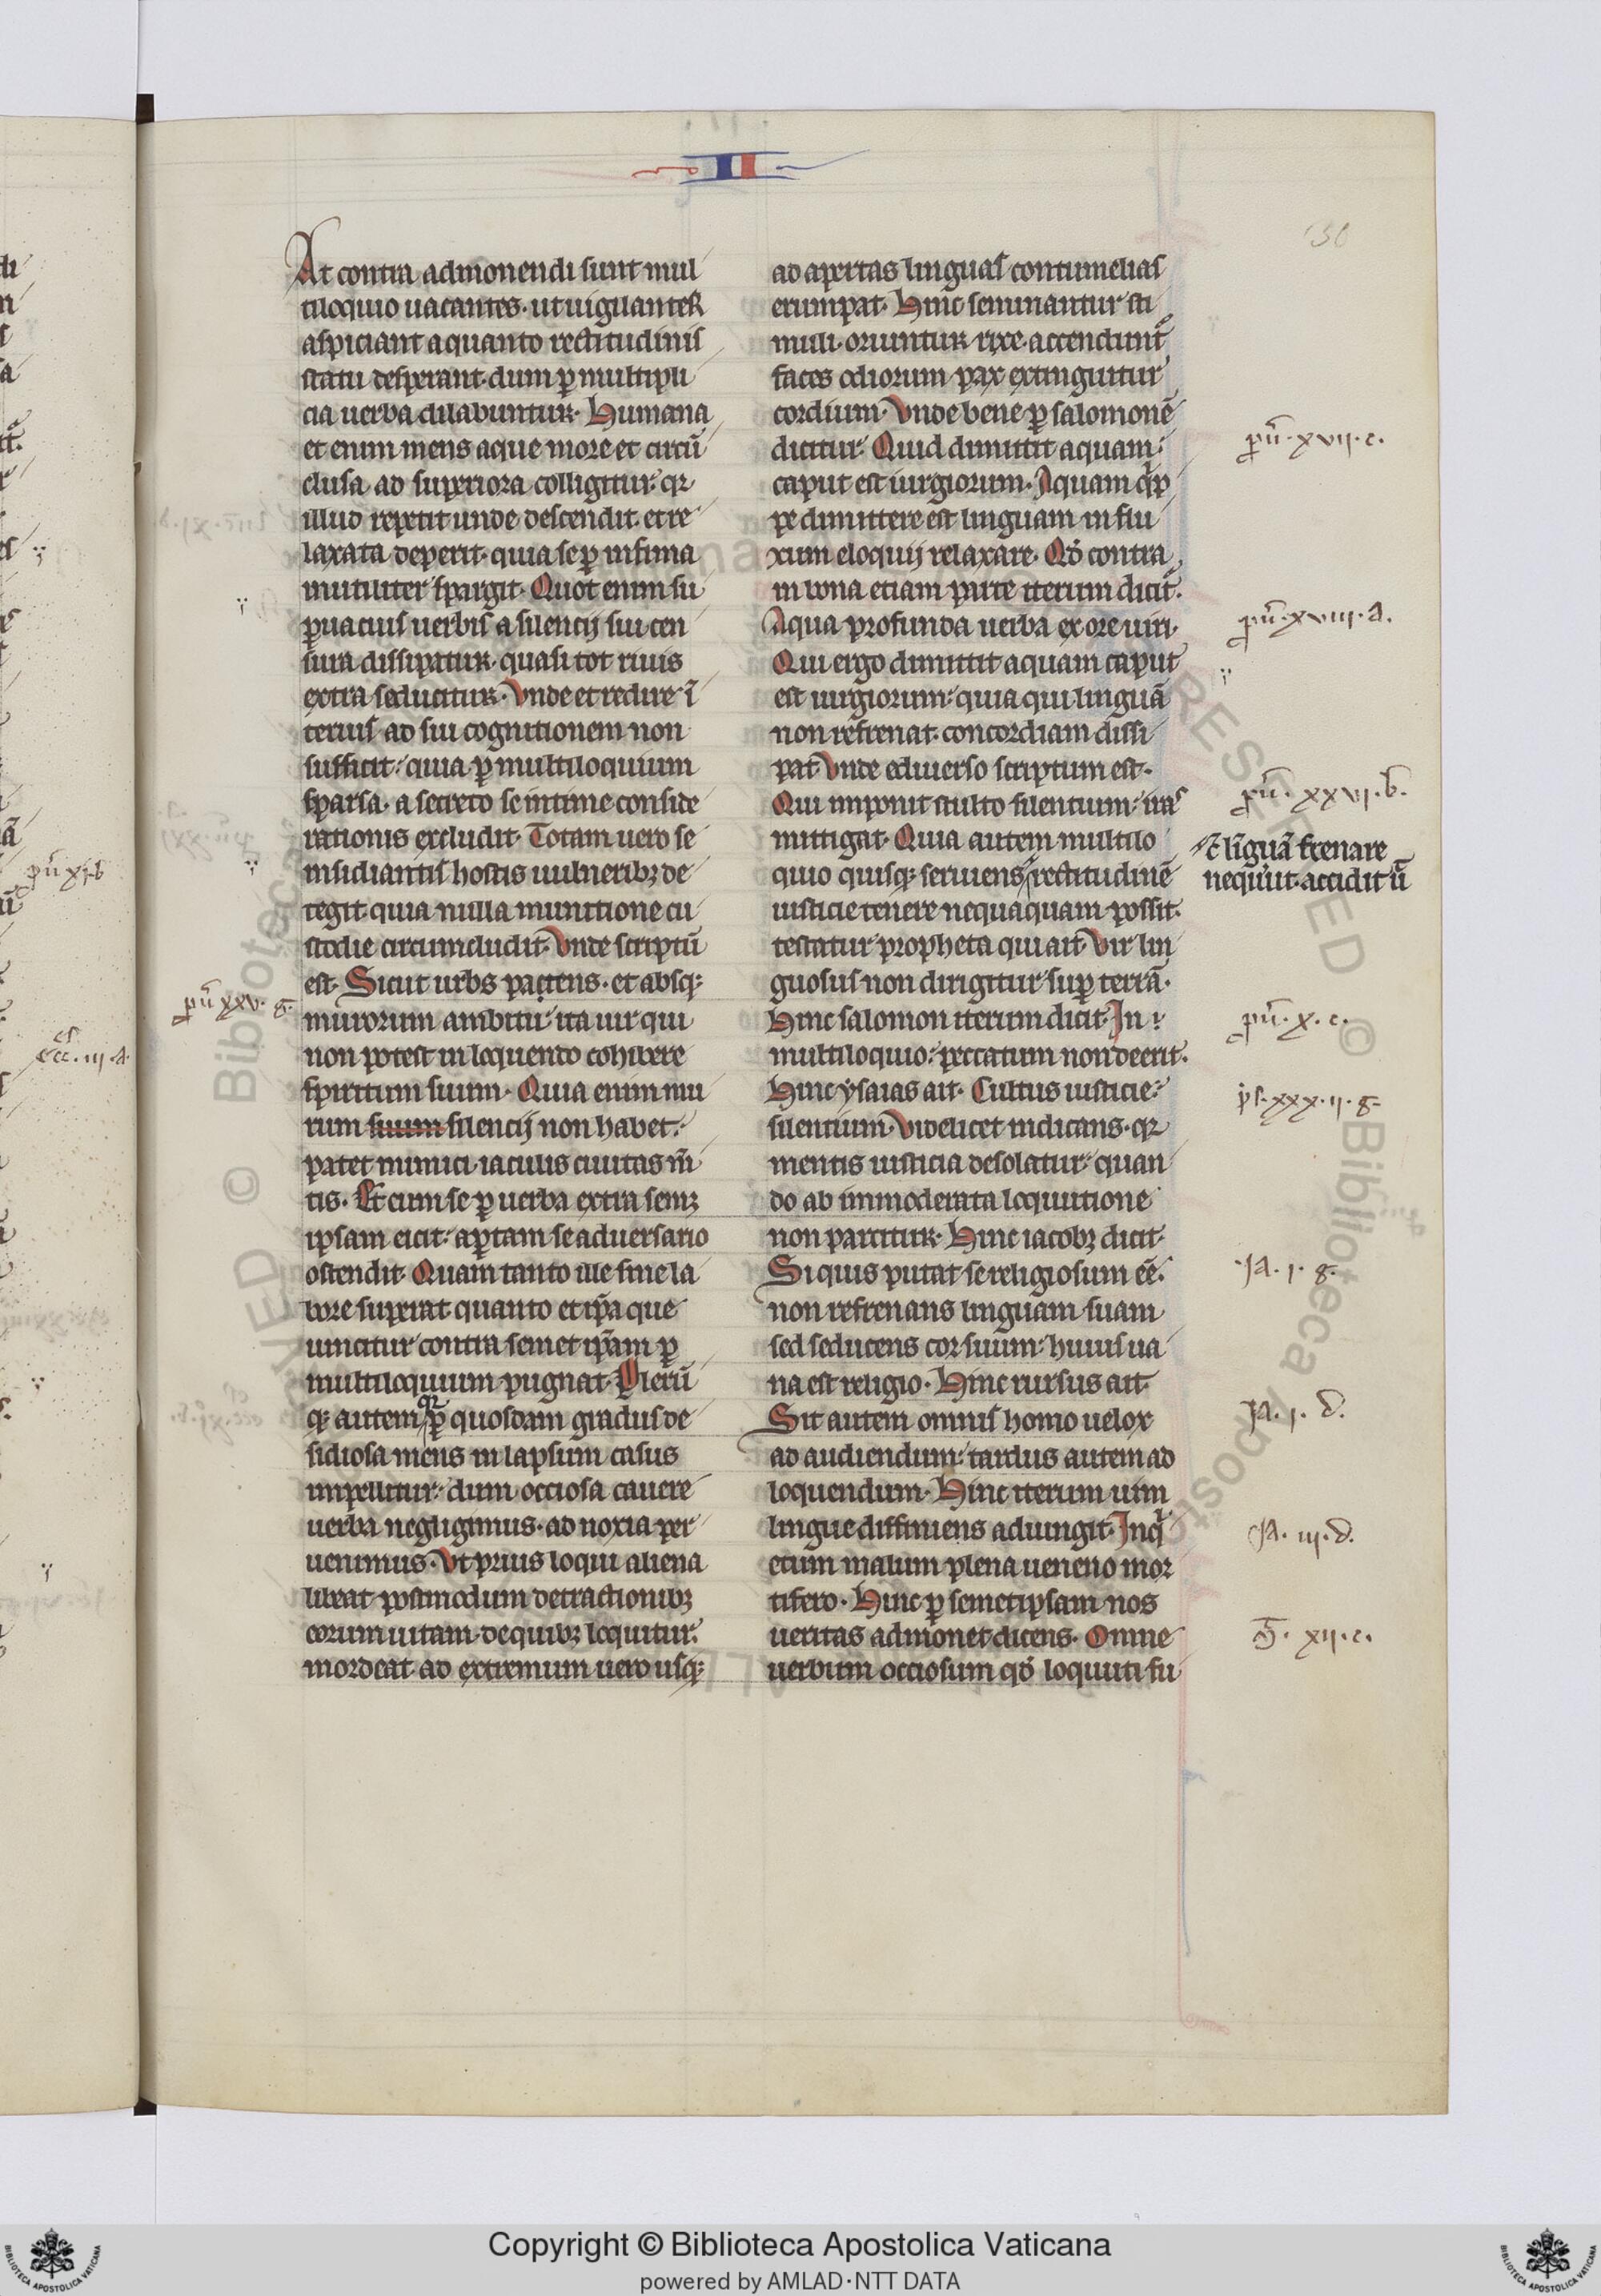 II
130
At contra admonendi sunt mul
tiloquio uacantes. ut uigilanter
aspiciant a quanto rectitudinis
statu desperant. dum ꝑ multipli
cia uerba dilabuntur. Humana
et enim mens aque more et circū
clusa ad superiora colligitur. qꝛ
illud repetit unde descendit. et re
laxata deperit. quia se ꝑ infima
inutiliter spargit. Quot enim su
ꝑuacuis uerbis a silencij sui cen
sura dissipatur. quasi tot riuis
extra se ducitur. Vnde et redire ī
terius ad sui cognitionem non
sufficit. quia ꝑ multiloquium
sparsa. a secreto se intime conside
rationis excludit. Totam uero se
insidiantis hostis uulneribꝫ de
tegit. quia nulla munitione cu
stodie circumcludit. Vnde scriptū
est. Sicut urbs patens. et absqꝫ
murorum ambitu. ita uir qui
non potest in loquendo cohibere
spiritum suum. Quia enim mu
rum suum silencij non habet.
patet inimici iaculis ciuitas m̄
tis. Et cum se ꝑ uerba extra semꝫ
ipsam eicit. aꝑtam se aduersario
ostendit. Quam tanto ille sine la
bore superat quanto et ip̄a que
uincitur contra semet ip̄am ꝑ
multiloquium pugnat. Plerū
qꝫ autem qꝛ ꝑ quosdam gradus de
sidiosa mens in lapsum casus
impellitur. dum occiosa cauere
uerba negligimus. ad noxia per
uenimus. Vt prius loqui aliena
libeat. postmodum detractionibꝫ
eorum uitam. de quibꝫ loquitur.
mordeat. ad extremum uero usqꝫ
ad apertas linguas contumelias
erumpat. Hinc seminantur sti
muli. oriuntur rixe. accendunt᷑
faces odiorum. pax extinguitur
cordium. Vnde bene ꝑ salomonē
dicitur. Quid dimittit aquam.
caput est iurgiorum. Aquam qͥp
pe dimittere est linguam in flu
xum eloquij relaxare. Qd̓ contra
in bona etiam parte iterum dicit᷑.
Aqua profunda uerba ex ore uiri.
Qui ergo dimittit aquam caput
est iurgiorum. quia qui linguā
non refrenat. concordiam dissi
pat. Vnde ediuerso scriptum est.
Qui imponit stulto silentium. iras
mittigat. Quia autem multilo
quio quisqꝫ seruiens rectitudinē
iusticie tenere nequaquam possit.
testatur propheta qui ait. Vir lin
guosus non dirigitur suꝑ terrā.
Hinc salomon iterum dicit. In
multiloquio. peccatum non deerit.
Hinc ysaias ait. Cultus iusticie.
silentium. Videlicet indicans. qꝛ
mentis iusticia desolatur. quan
do ab immoderata loquutione
non parcitur. Hinc iacobꝫ dicit.
Si quis putat se religiosum eē.
non refrenans linguam suam
sed seducens cor suum. huius ua
na est religio. Hinc rursus ait.
Sit autem omnis homo uelox
ad audiendum. tardus autem ad
loquendum. Hinc iterum uim
lingue diffiniens adiungit. Inqͥ
etum malum plena ueneno mor
tifero. Hinc ꝑ semetipsam nos
ueritas admonet dicens. Omne
uerbum occiosum qd̓ loquuti fu
pū xi b
ecc. iii. a.
pū xxv. g.
pū. xvii. c.
pū. xviii. a.
pū. xxvi. b.
līguā frenare
nequ̕ut. accidit ū
pū. x. c.
ps. xxx. ii. g.
Ja. i. g.
Ja. i. d.
Ja. iii. d.
xii. c.
© Biblioteca Apostolica
RESERVED
Copyright © Biblioteca Apostolica Vaticana
powered by AMLAD·NTT DATA
BIBLIOTECA APOSTOLICA VATICANA
BIBLIOTECA APOSTOLICA VATICANA